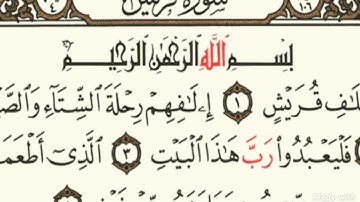 سورة قريش
بِسْمِ اللَّهِ الرَّحْمَٰنِ الرَّحِيمِ
لَٰفِ قُرَيْشٍ ١ إِۦلَٰفِهِمْ رِحْلَةَ الشِّتَآءِ وَالصَّ
فَلْيَعْبُدُوا۟ رَبَّ هَٰذَا الْبَيْتِ ٣ الَّذِىٓ أَطْعَمَ
Made with